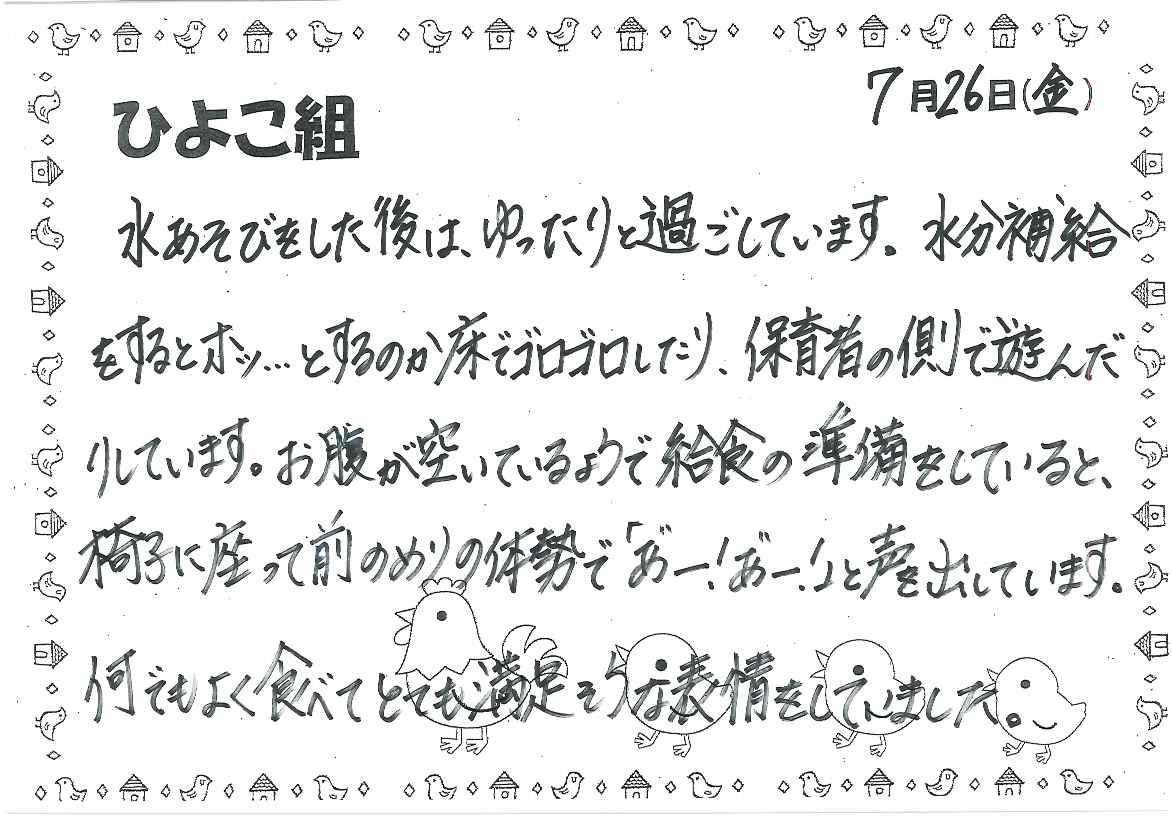 7月26日(金)
ひよこ組
水あそびをした後は、ゆったりと過ごしています。水分補給
をするとホッ…とするのか床でゴロゴロしたり、保育者の側で遊んだ
りしています。お腹が空いているようで給食の準備をしていると、
椅子に座って前のめりの体勢で「あ゛ー!あ゛ー!」と声を出しています。
何でもよく食べてとても満足そうな表情をしていました。